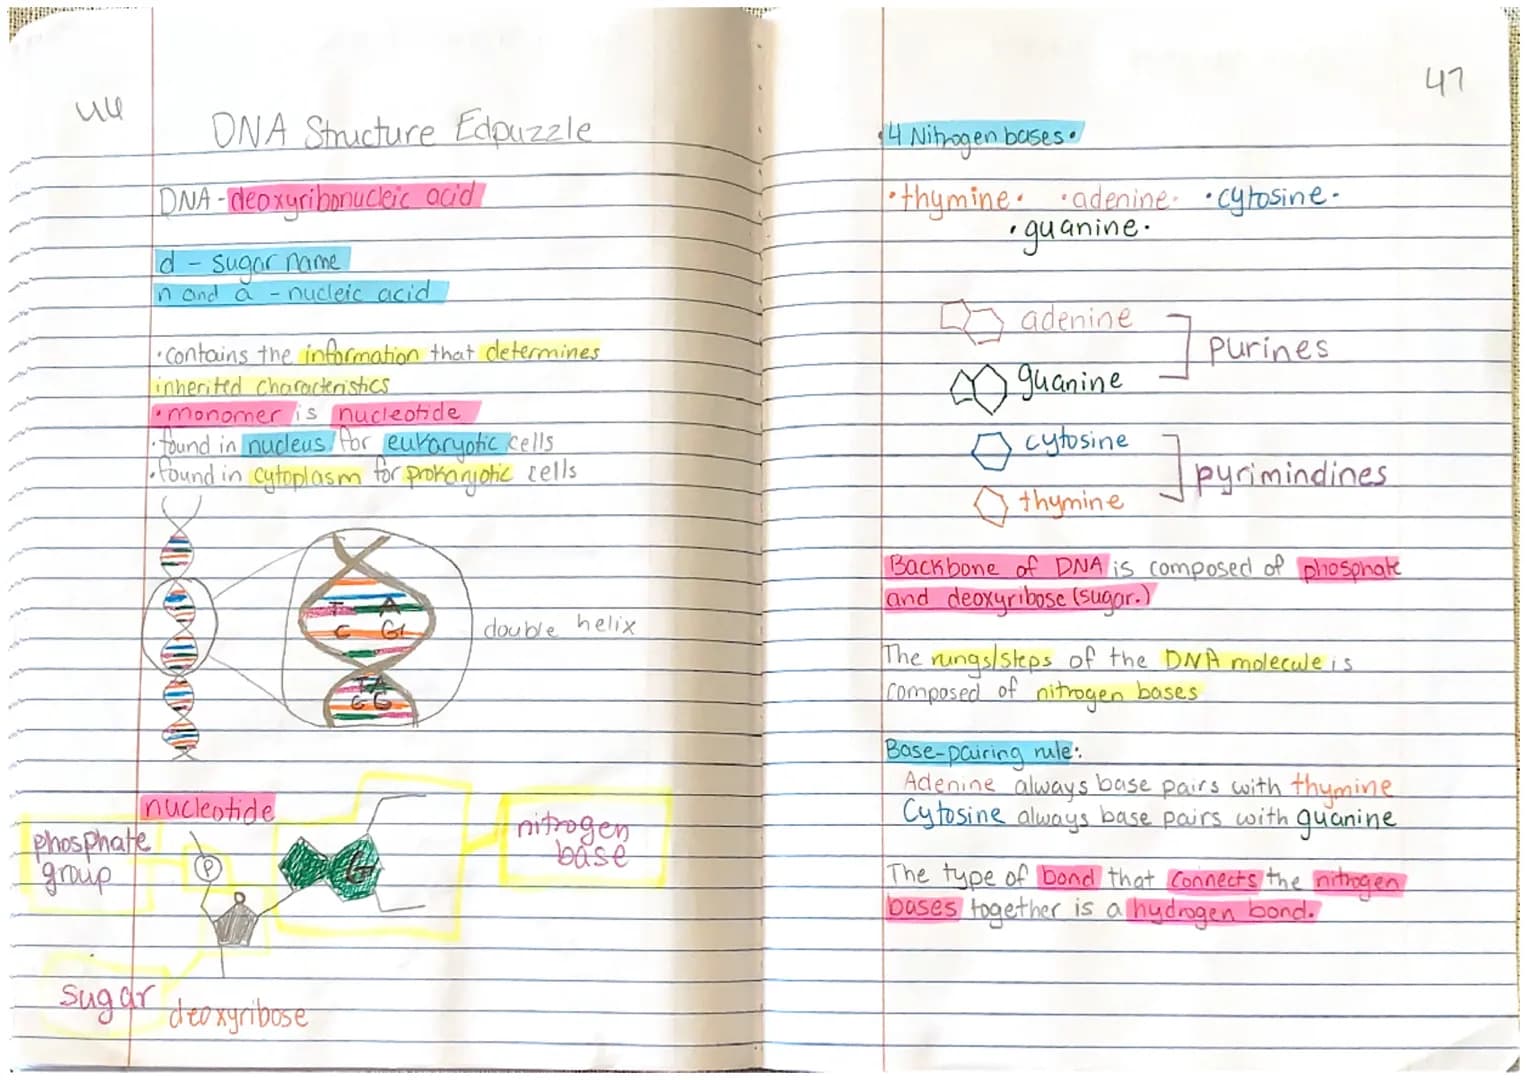 46
DNA Structure Edpuzzle
DNA - deoxyribonucleic acid
d - sugar name
n and a - nucleic acid
• contains the information that determines
inherited characteristics
• monomer is nucleotide
• found in nucleus for eukaryotic cells
• found in cytoplasm for prokaryotic cells
T A
C G
double helix
T A
C G
nucleotide
phosphate
group
P
G
nitrogen
base
sugar
deoxyribose
47
• 4 Nitrogen bases •
• thymine • • adenine • • cytosine •
• guanine •
adenine
purines
guanine
cytosine
pyrimindines
thymine
Backbone of DNA is composed of phosphate
and deoxyribose (sugar.)
The rungs/steps of the DNA molecule is
composed of nitrogen bases
Base-pairing rule:
Adenine always base pairs with thymine
Cytosine always base pairs with guanine
The type of bond that connects the nitrogen
bases together is a hydrogen bond.